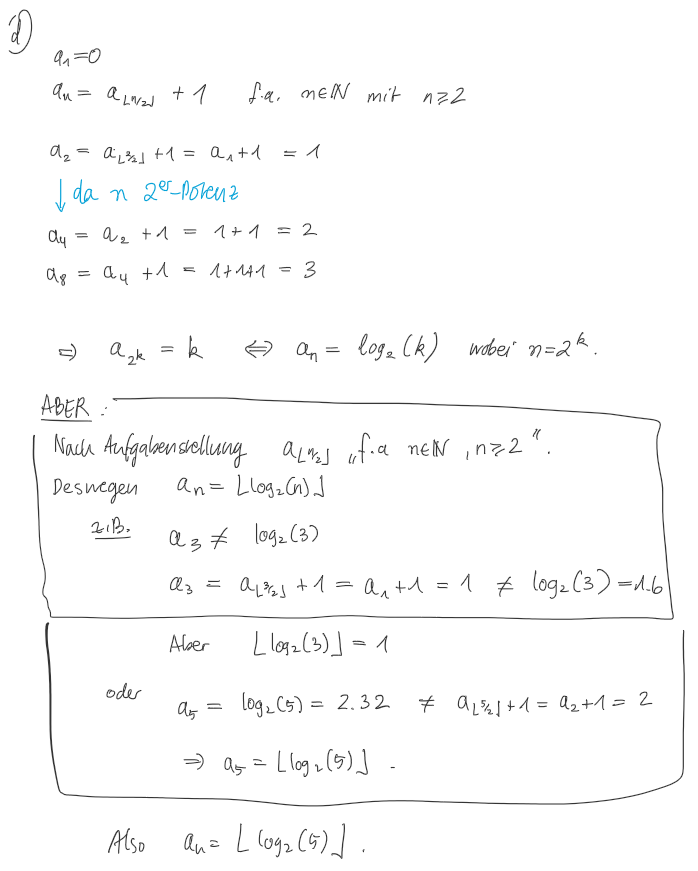 d)
a₁=0
aₙ = a⌊n/2⌋ + 1 f.a. n∈ℕ mit n≥2
a₂ = a⌊2/2⌋ +1 = a₁+1 = 1
↓ da n 2er-Potenz
a₄ = a₂ +1 = 1+1 = 2
a₈ = a₄ +1 = 1+1+1 = 3
⇒ a_{2^k} = k ⇔ aₙ = log₂(k) wobei n=2^k.
ABER:
Nach Aufgabenstellung a⌊n/2⌋ „f.a n∈ℕ, n≥2".
Deswegen aₙ = ⌊log₂(n)⌋
z.B. a₃ ≠ log₂(3)
a₃ = a⌊3/2⌋ + 1 = a₁ + 1 = 1 ≠ log₂(3) = 1.6
Aber ⌊log₂(3)⌋ = 1
oder a₅ = log₂(5) = 2.32 ≠ a⌊5/2⌋ + 1 = a₂+1 = 2
⇒ a₅ = ⌊log₂(5)⌋.
Also aₙ = ⌊log₂(5)⌋.